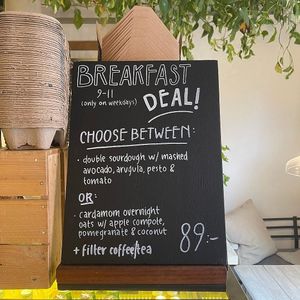 BREAKFAST
9-11
(only on weekdays)
DEAL!
CHOOSE BETWEEN:
· double sourdough w/ mashed
avocado, arugula, pesto &
tomato
OR:
· cardamom overnight
oats w/ apple compote,
pomegranate & coconut
+ filter coffee/tea
89:-